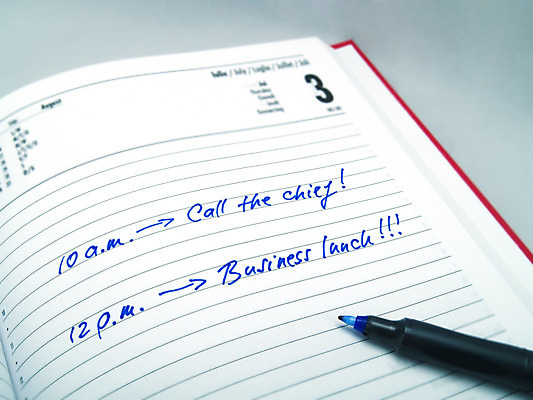 August
Julio / July / Luglio / Juillet / Juli
3
10 a.m. → Call the chief!
12 p.m. → Business lunch!!!